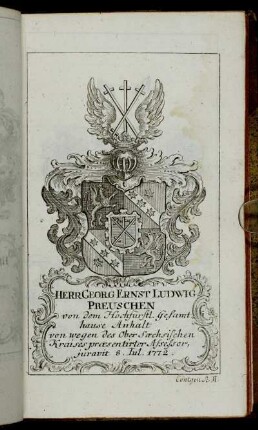 HERR GEORG ERNST LUDWIG
PREUSCHEN
von dem Hochfürstl. Gesamt
hause Anhalt
von wegen des Ober Sæchsischen
Kraises præsentirter Assessor,
juravit 8. Jul. 1772.